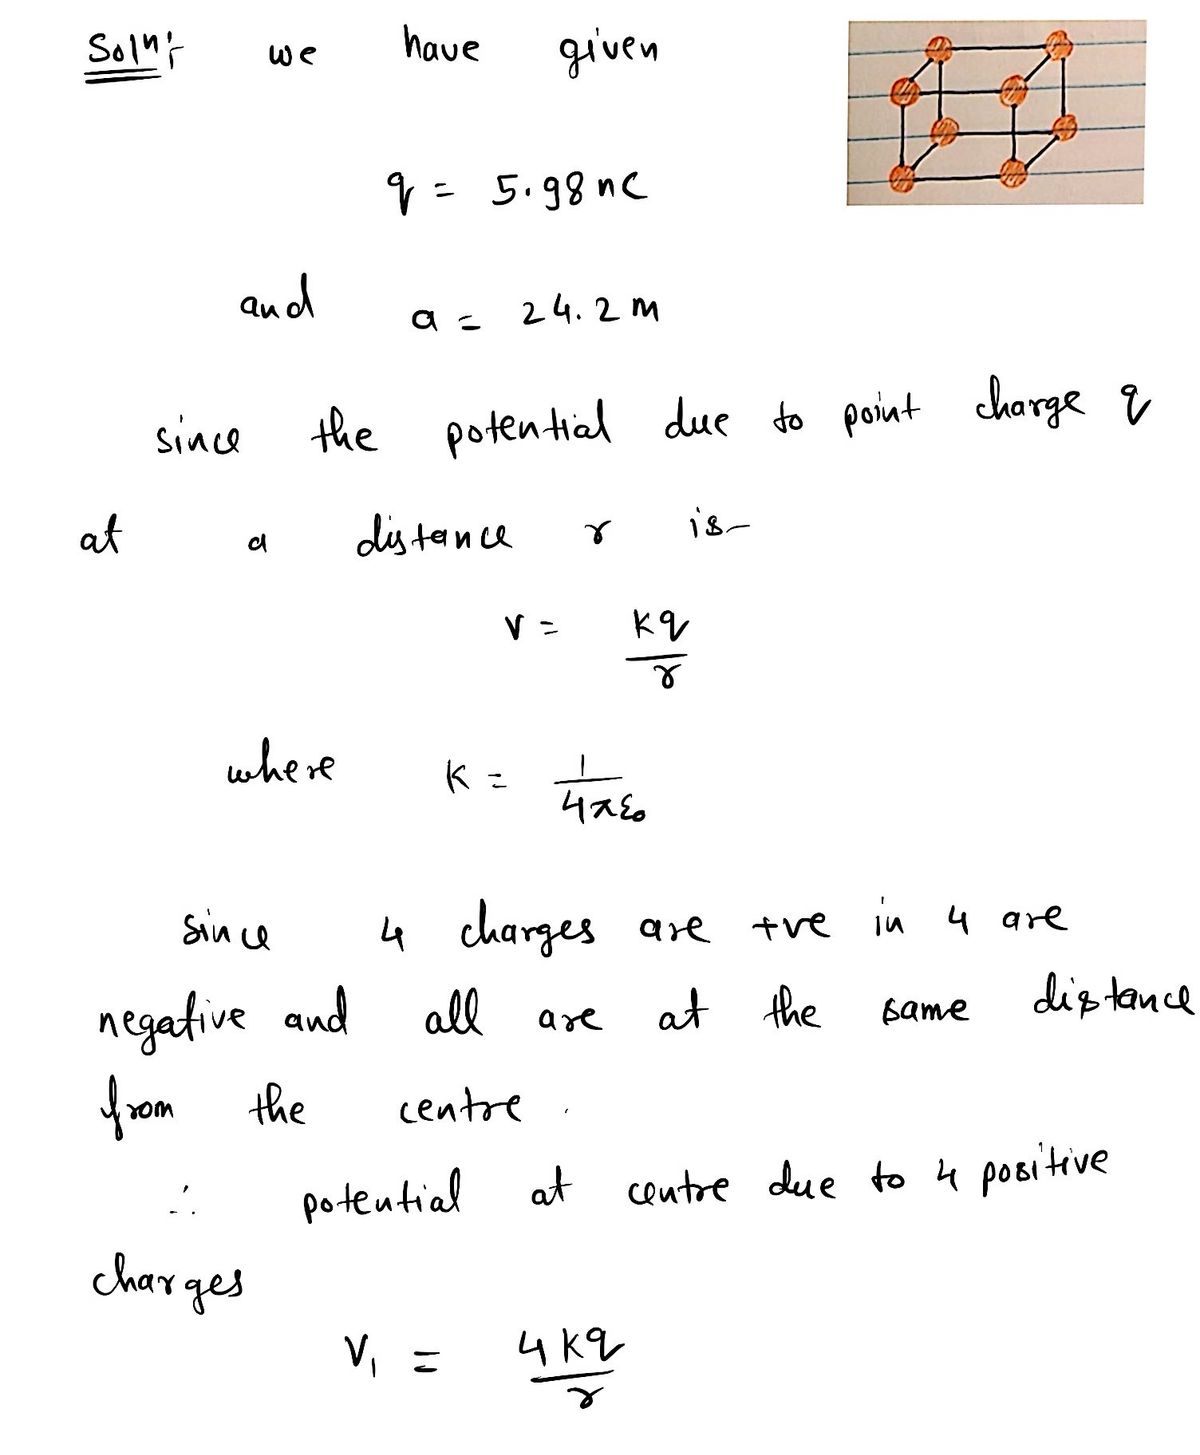 Soln:- we have given
q = 5.98 nC
and a = 24.2 m
since the potential due to point charge q
at a distance r is-
V = Kq/r
where K = 1/4πε₀
Since 4 charges are +ve in 4 are
negative and all are at the same distance
from the centre.
∴ potential at centre due to 4 positive
charges
V₁ = 4Kq/r